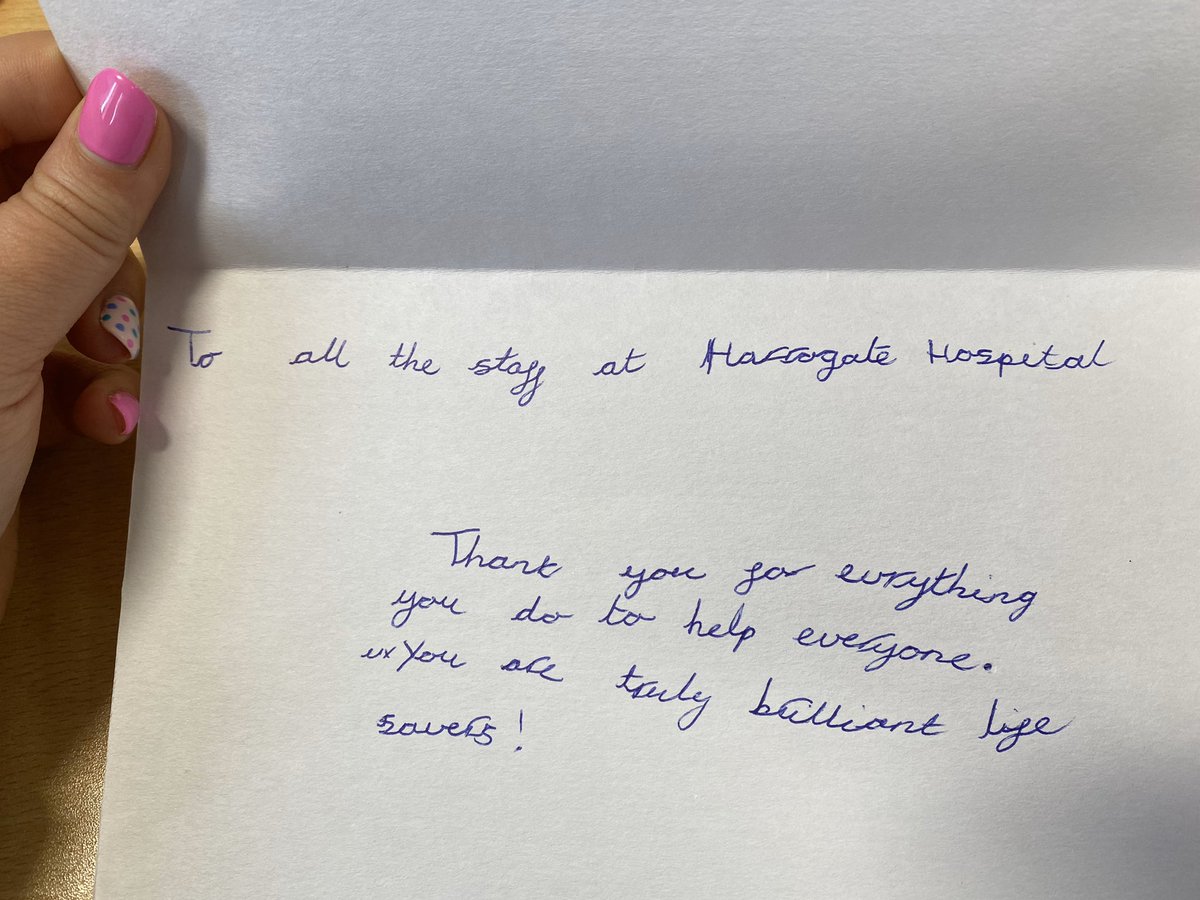 To all the staff at Harrogate Hospital
Thank you for evrything
you do to help everyone.
You are truly brilliant life
savers!